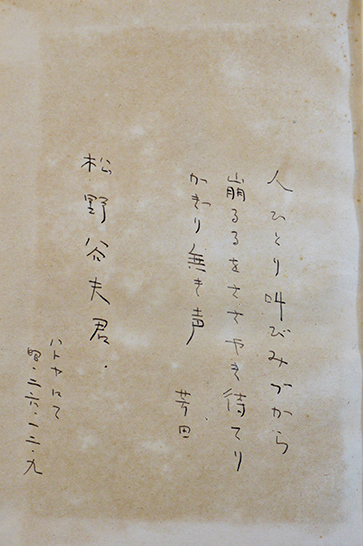 人ひとり叫びみづから
崩るるをささやき待てり
かぎり無き声
芳思
松野谷夫君.
ハトヤにて
昭・二六・一二・九